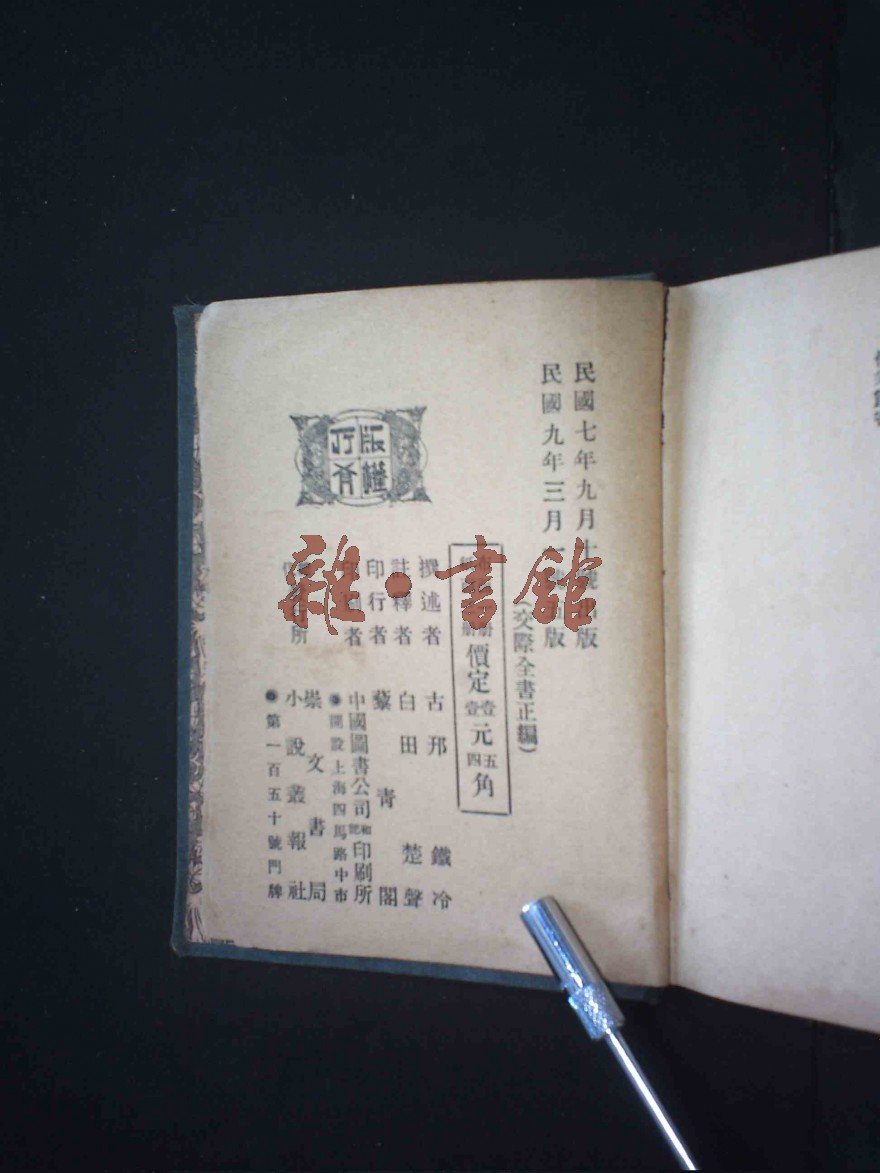 民國七年九月十號出版
民國九年三月一 五版
(交際全書正編)
價定壹壹元五四角
撰述者 古邗 鐵冷
註釋者 白田 楚聲
印行者 藜青閣
印刷者 中國圖書公司和記印刷所
●開設上海四馬路中市
所 崇文書局
小說叢報社
●第一百五十號門牌
版權
所有
雜·書館